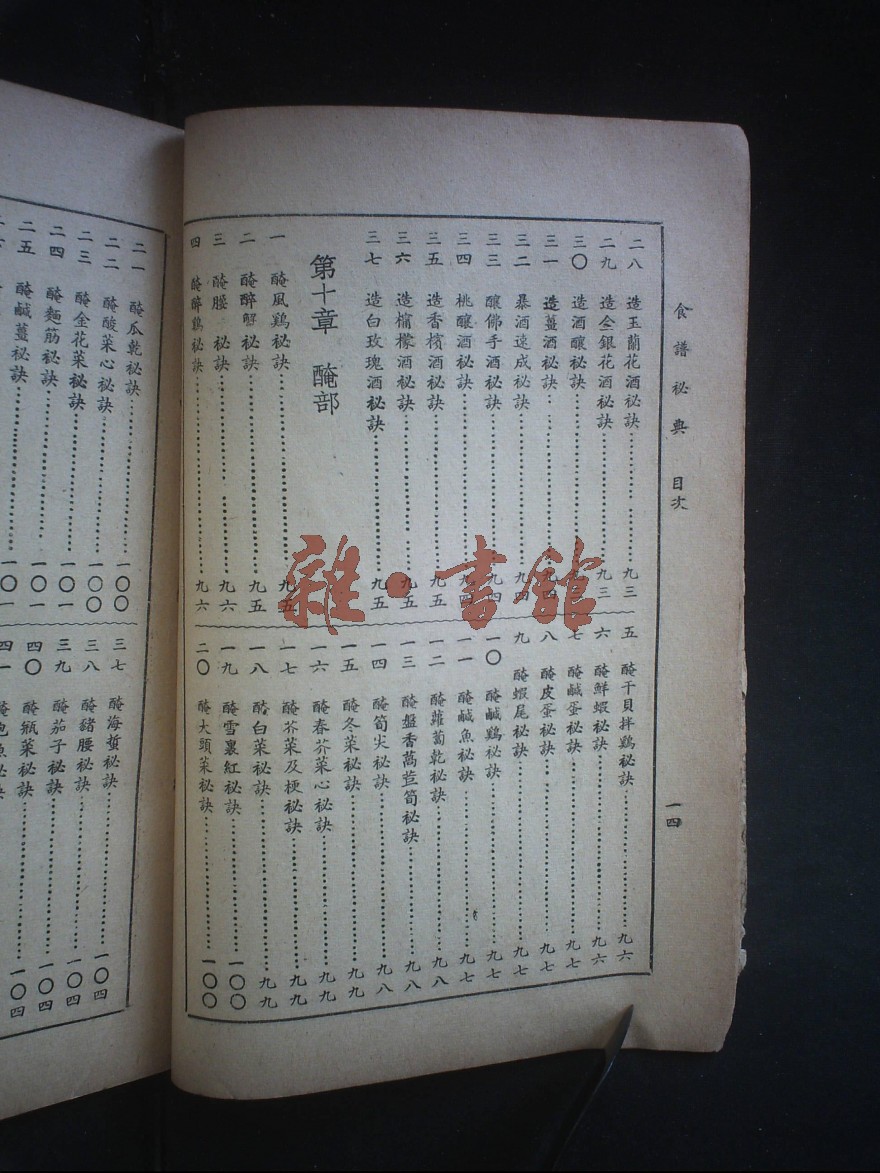 食譜秘典 目次
一四
二八 造玉蘭花酒秘訣 九三
二九 造金銀花酒秘訣 九三
三〇 造酒釀秘訣
三一 造薑酒秘訣 九四
三二 暴酒速成秘訣 九四
三三 釀佛手酒秘訣 九四
三四 桃釀酒秘訣 九四
三五 造香檳酒秘訣 九五
三六 造檸檬酒秘訣 九五
三七 造白玫瑰酒秘訣 九五
第十章 醃部
一 醃風鷄秘訣 九五
二 醃醉蟹秘訣 九五
三 醃腰秘訣 九六
四 醃醉鷄秘訣 九六
五 醃干貝拌鷄秘訣 九六
六 醃鮮蝦秘訣 九六
七 醃鹹蛋秘訣 九七
八 醃皮蛋秘訣 九七
九 醃蝦尾秘訣 九七
一〇 醃鹹鷄秘訣 九七
一一 醃鹹魚秘訣 九七
一二 醃蘿蔔乾秘訣 九八
一三 醃盤香萵苣筍秘訣 九八
一四 醃筍尖秘訣 九八
一五 醃冬菜秘訣 九九
一六 醃春芥菜心秘訣 九九
一七 醃芥菜及梗秘訣 九九
一八 醃白菜秘訣 九九
一九 醃雪裏紅秘訣 一〇〇
二〇 醃大頭菜秘訣 一〇〇
二一 醃瓜乾秘訣 一〇〇
二二 醃酸菜心秘訣 一〇〇
二三 醃金花菜秘訣 一〇一
二四 醃麵筋秘訣 一〇一
二五 醃鹹薑秘訣 一〇一
三七 醃海蜇秘訣 一〇四
三八 醃豬腰秘訣 一〇四
三九 醃茄子秘訣 一〇四
四〇 醃瓶菜秘訣 一〇四
四一
雜·書館